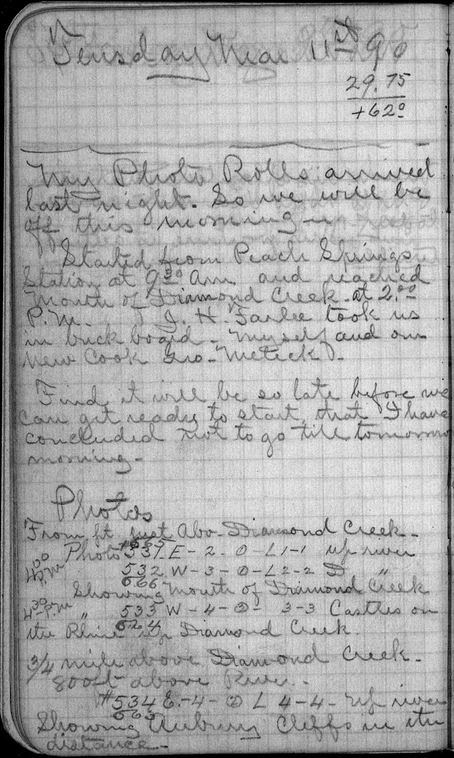 Teusday Mar 11th 90
29.75
+62º
My Photo Rolls arrived
last night. So we will be
off this morning
Started from Peach Springs
Station at 9 30 Am and reached
Mouth of Diamond Creek at 2.00
P.M. J. H. Farlee took us
in buck board - Myself and our
New Cook Geo. Metick.
Find it will be so late before we
can get ready to start that I have
concluded not to go till tomorrow
morning -
Photos
From pt just Abo Diamond Creek -
Photo 531 E - 2 - O - L 1-1 up river
4 00 PM 532 W - 3 - O - L 2-2 D "
666
Showing Mouth of Diamond Creek
4 30 P.M " 533 W - 4 - O 3-3 Castles on
624
the Rhine up Diamond Creek.
3/4 mile above Diamond Creek -
800 ft above River -
# 534 E - 4 - O L 4-4 - up river
Showing Cliffs in the
distance -